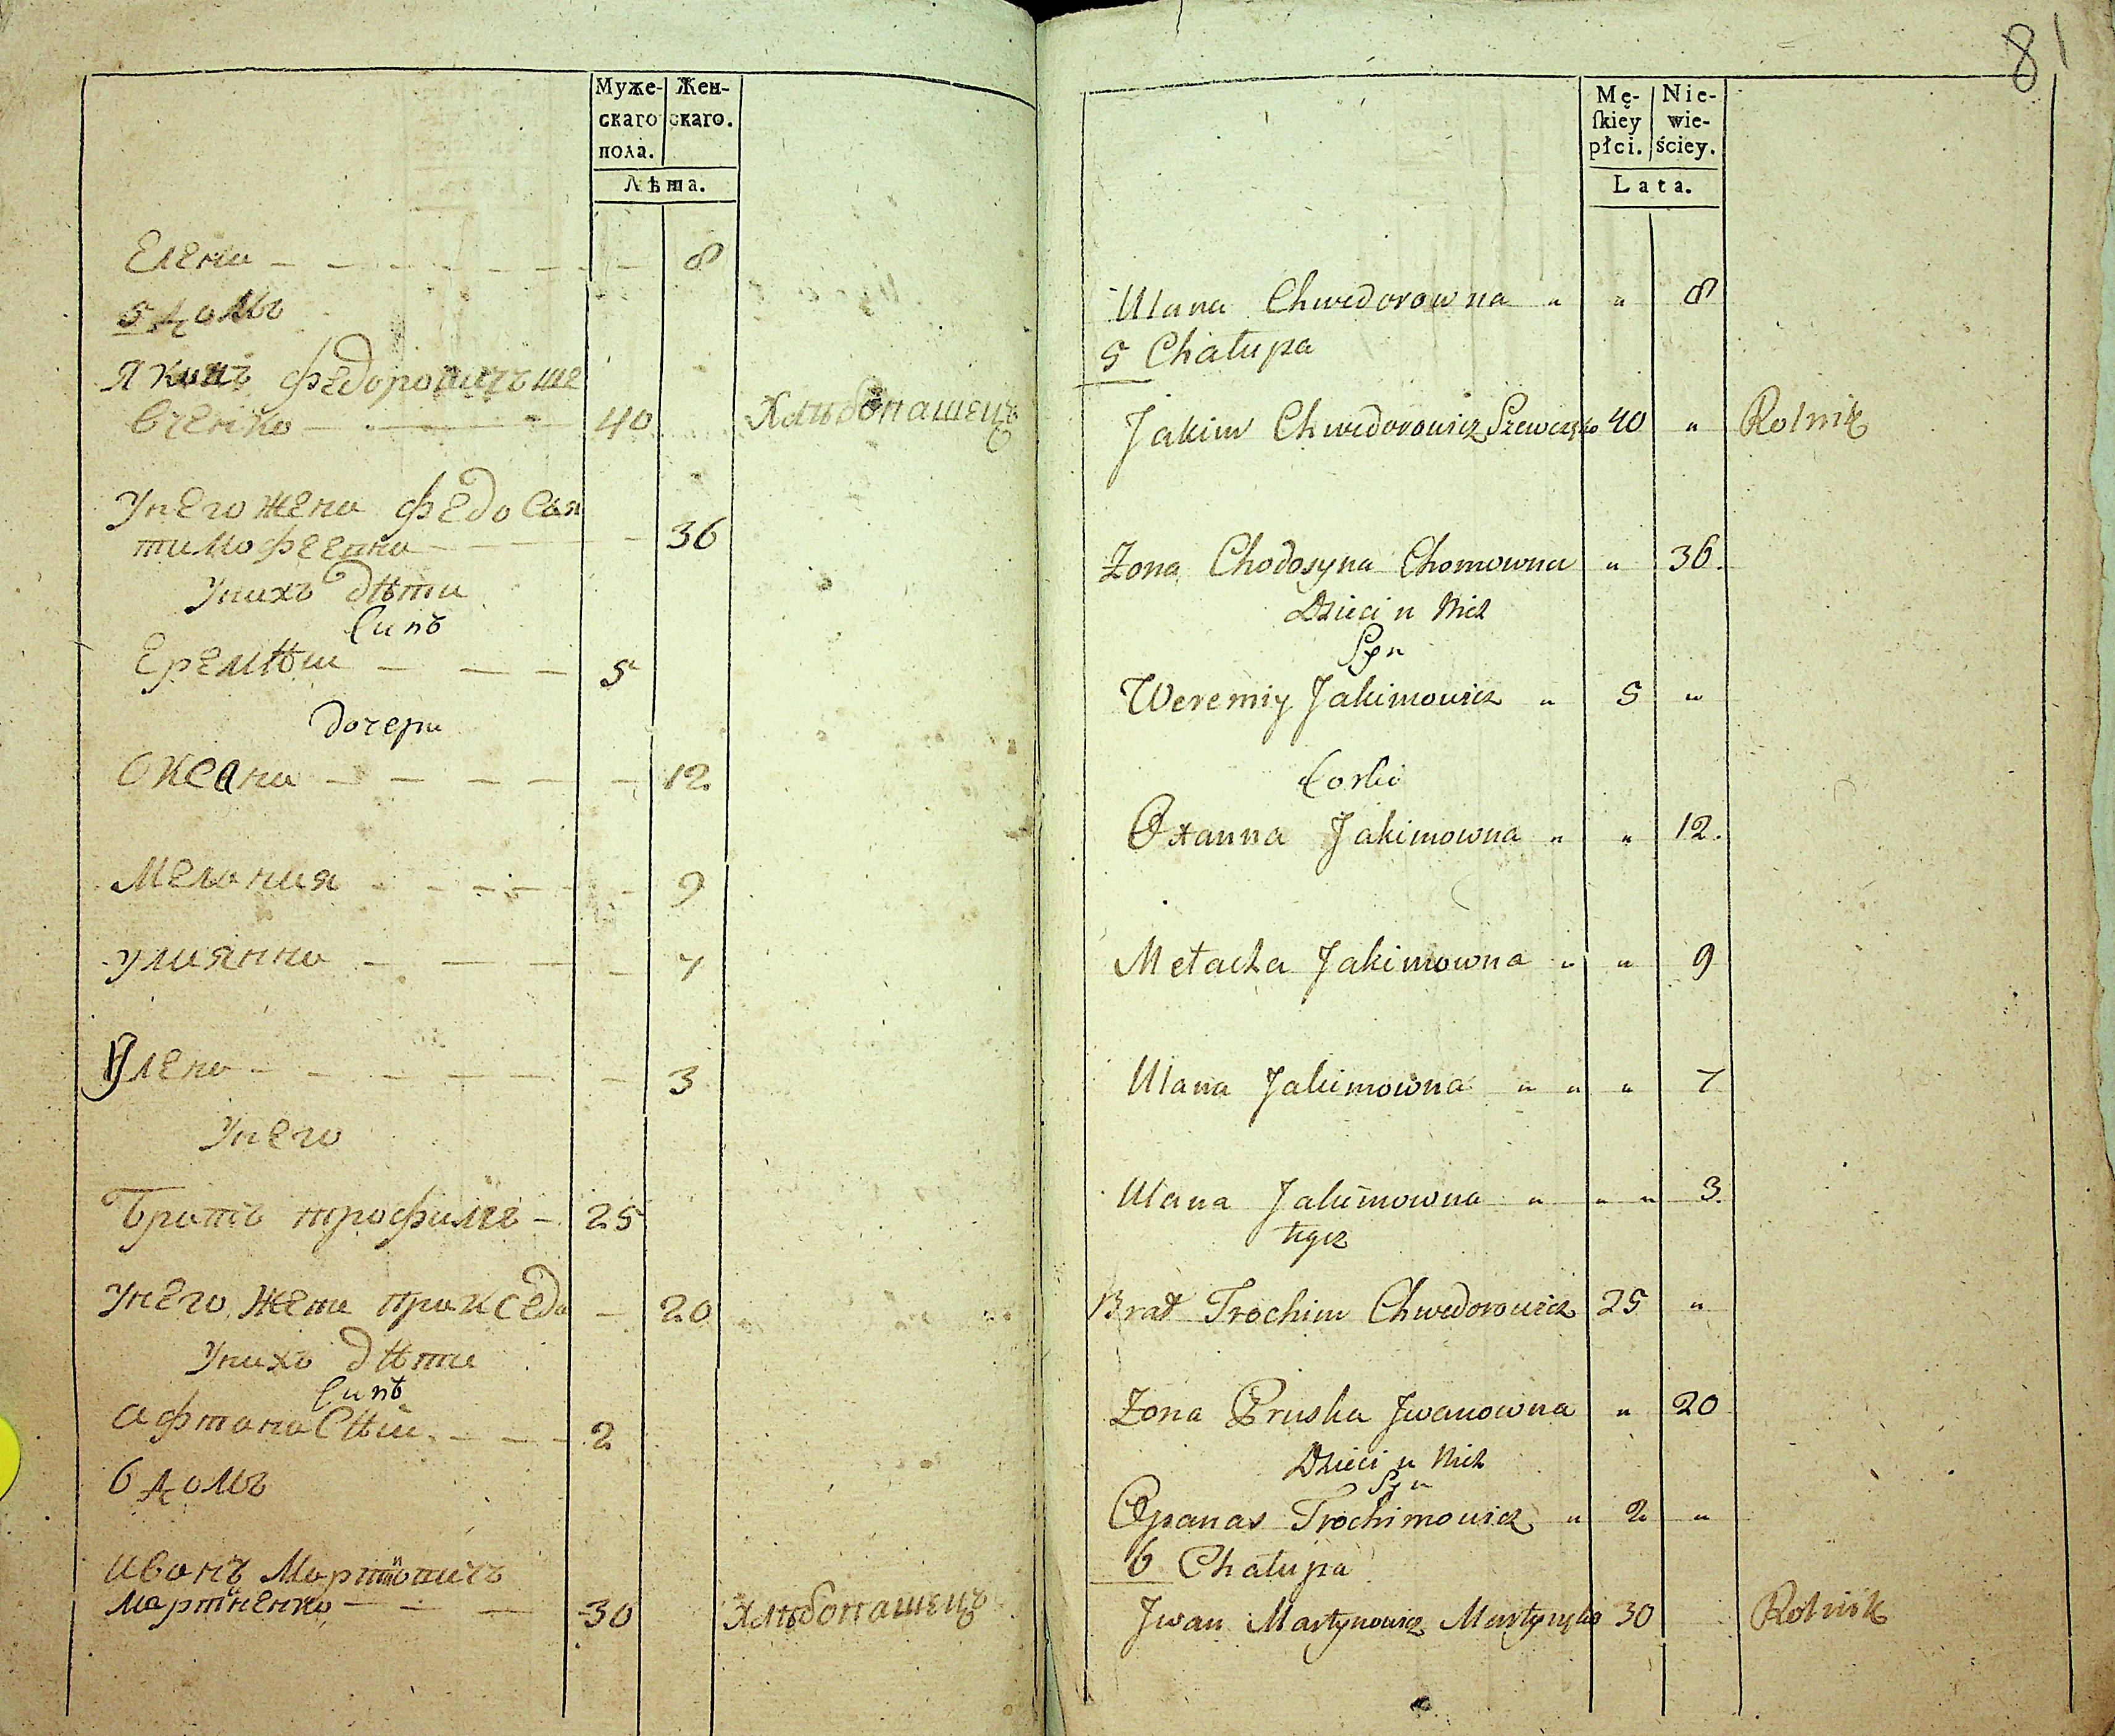 Муже-
скаго
пола.
Жен-
скаго.
Лѣта.
Елена — — — — — — — 8
5 домъ
Якимъ Федоровичъ ше
вченко — — — 40 Хлѣбопашецъ
У него жена Федосия
тимофеевна — — — 36
У нихъ дѣти
Синъ
Еремѣи — — — 5
дочери
Оксана — — — — — 12
Мелания — — — — — 9
улиянна — — — — 7
Улена — — — — — — 3
У него
Братъ трофимъ — 25
У него жена пракседа — 20
У нихъ дѣти
Синъ
Афтанасѣи — — — 2
6 домъ
Иванъ Мартиновичъ
Мартиненко — — — 30 Хлѣбопашецъ
81
Mę-
ſkiey
płci.
Nie-
wie-
ściey.
Lata.
Ulana Chwedorowna " " 8
5 Chałupa
Jakim Chwedorowicz Szewczęko 40 " Rolnik
Zona Chodosyna Chomowna " 36.
Dzieci u Nich
Syn
Weremiy Jakimowicz " 5 "
Corki
Oxanna Jakimowna " " 12.
Metacha Jakimowna " " 9
Ulana Jakimowna " " " 7
Ulana Jakimowna " " " 3
tegoz
Brat Trochim Chwedorowicz 25 "
Zona Pruska Jwanowna " 20
Dzieci u Nich
Syn
Opanas Trochimowicz " 2 "
6 Chałupa
Jwan Martynowicz Martynęko 30 Rolnik